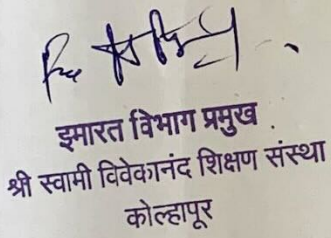 इमारत विभाग प्रमुख
श्री स्वामी विवेकानंद शिक्षण संस्था
कोल्हापूर